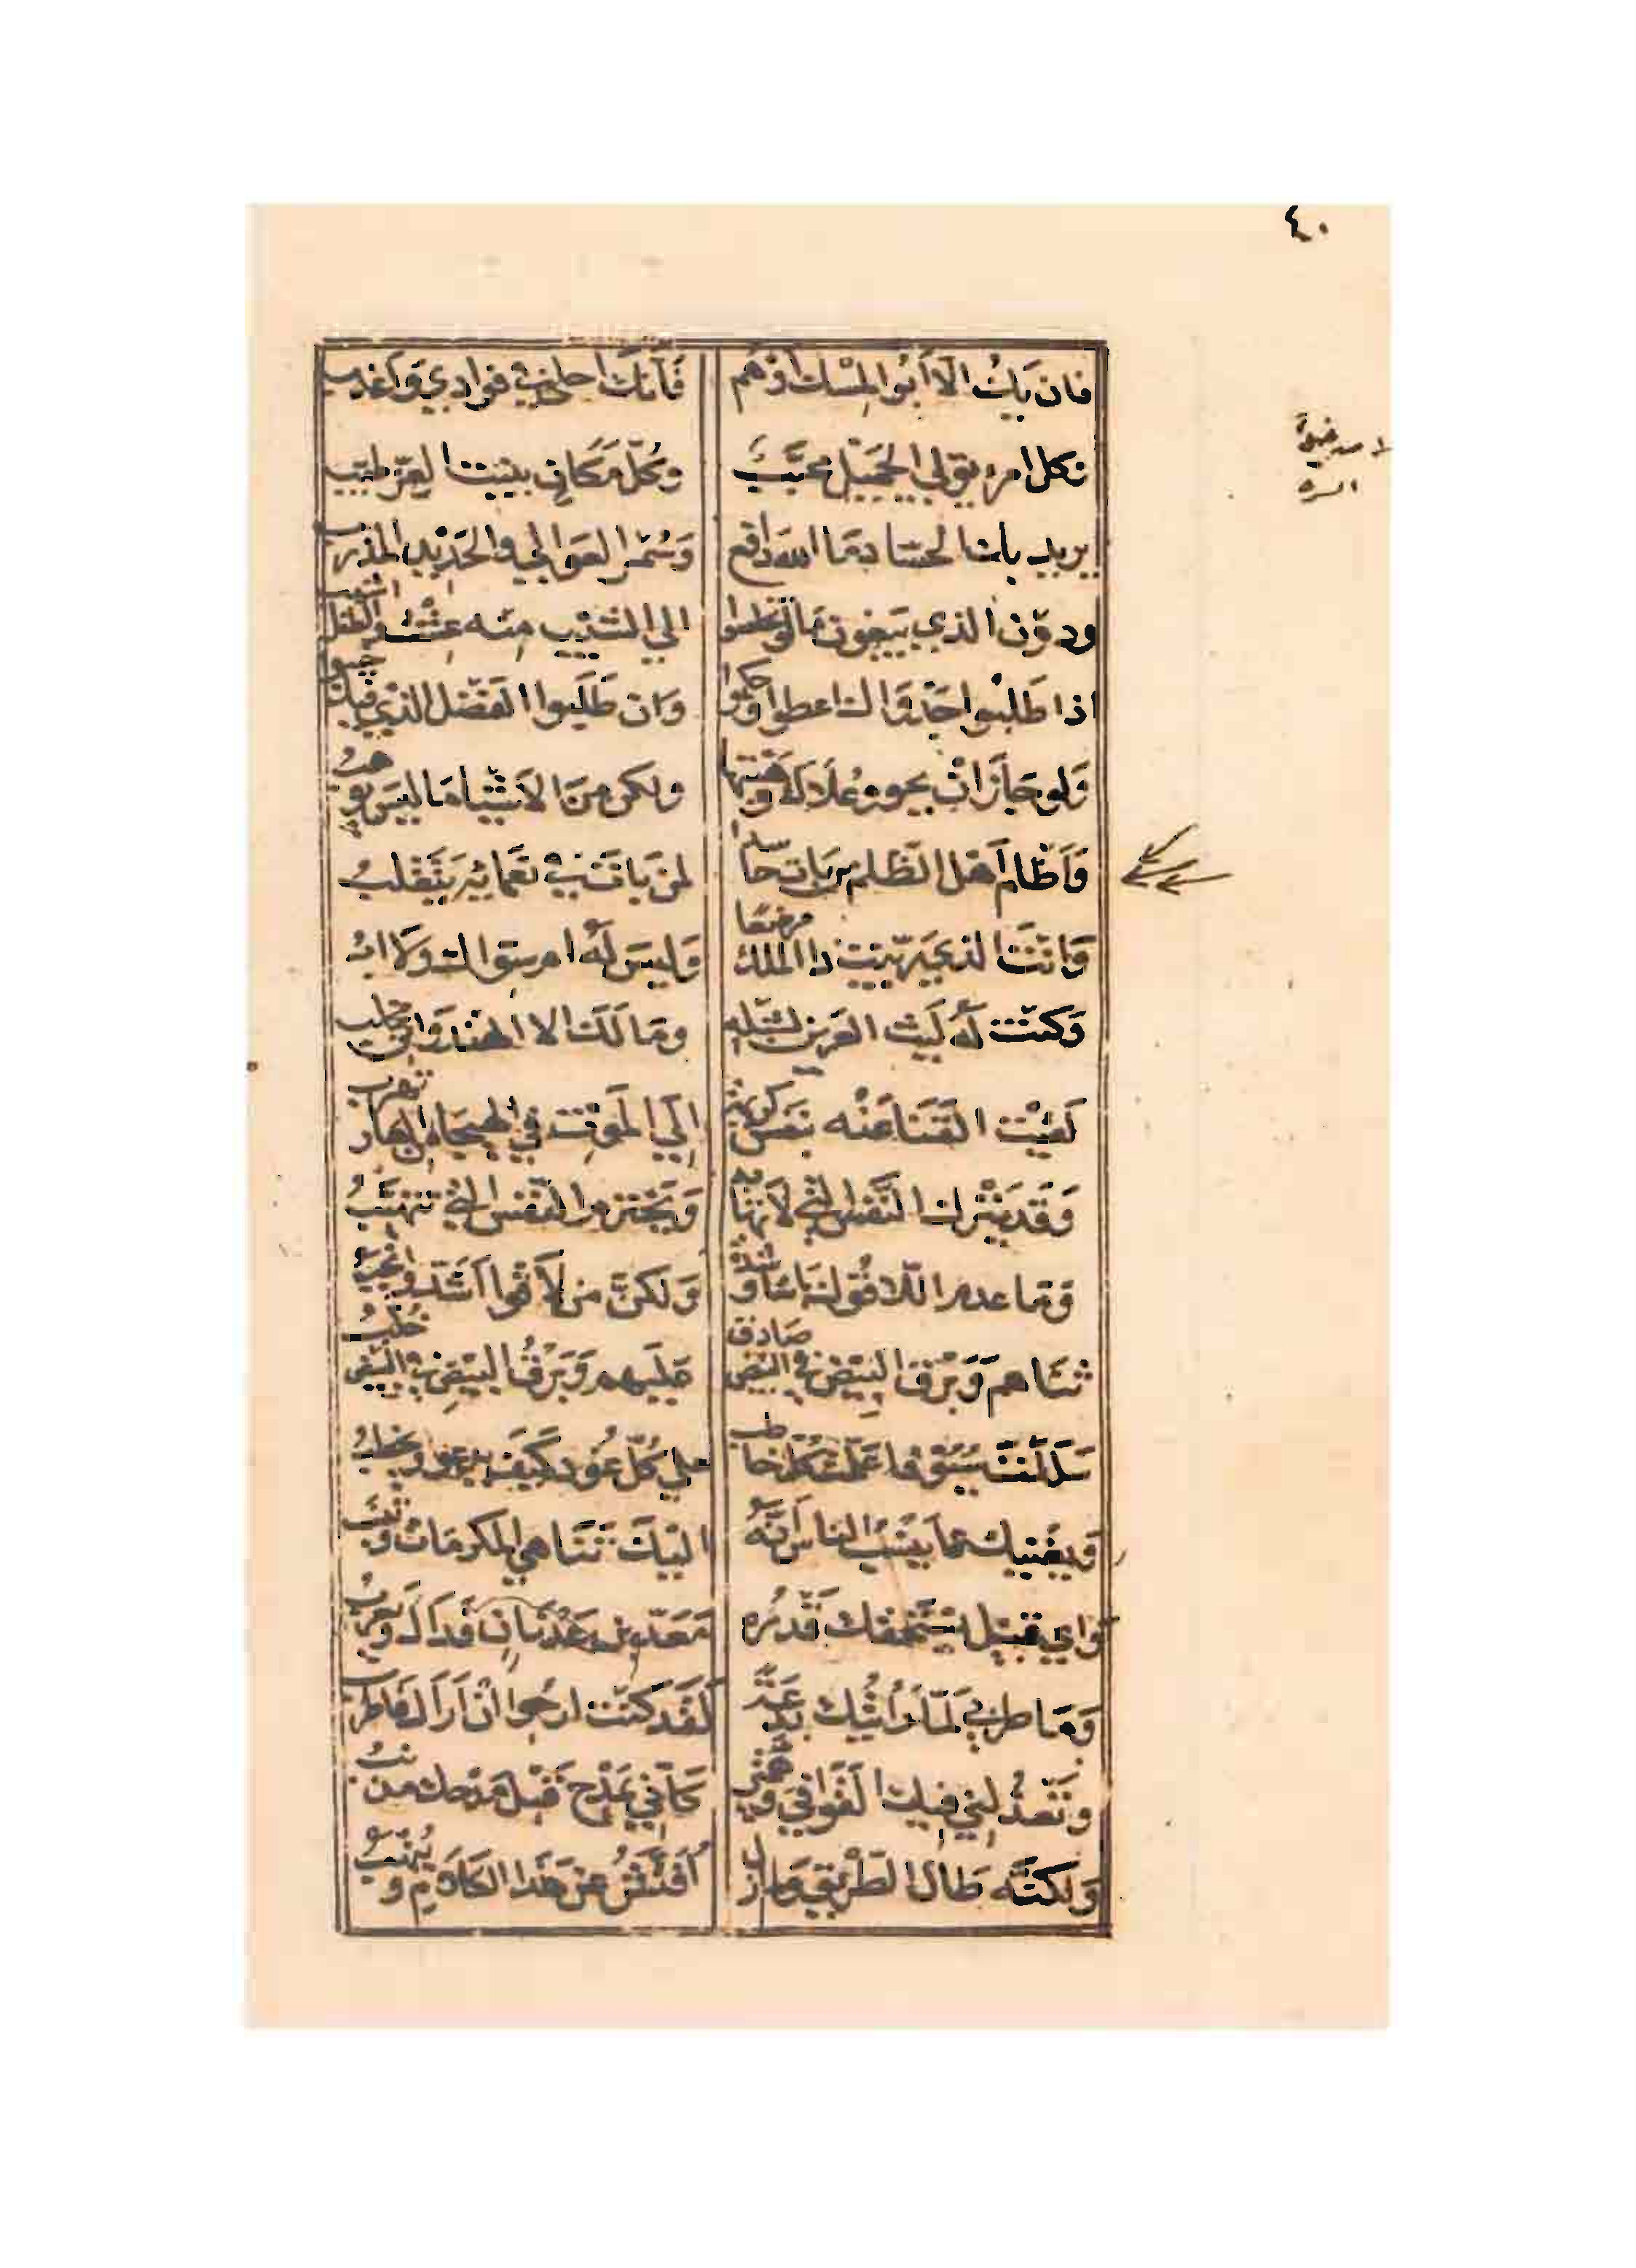 ٤٠
فان يك الا ابوا المسك اوهم فانك احلى في فوادي واعذب
وكل امرء يولي الجميل محبب وكل مكان ينبت العز طيب
يريد بك الحساد ما الله دافع وسمر العوالي والحديد المذرب
ودون الذي يبغون مالو تخلصوا الي الشيب منه عشت والطفل اشيب
اذا طلبوا جدواك اعطوا وحكموا وان طلبوا الفضل الذي فيك خيبوا
ولو جاز ان يحووا علاك وهبتها ولكن من الاشيا ما ليس يوهب
واظلم اهل الظلم من بات حاسدا لمن بات في نعمائه يتقلب
وانت الذي ربيت ذا الملك مرضعا وليس له ام سواك ولا اب
وكنت له ليث العرين لشبله ومالك الا الهندواني مخلب
لقيت القنا عنه بنفس كريمة الي الموت في الهيجا من العار تهرب
وقد يترك النفس التي لا تهابه ويخترم النفس التي تتهيب
وما عدم اللاقوك باسا وشدة ولكن من لاقوا اشد وانجب
ثناهم وبرق البيض في البيض صادق عليهم وبرق البيض في البيض خلب
سللت سيوفا علمت كل خاطب علي كل عود كيف يدعو ويخطب
ويغنيك عما ينسب الناس انه اليك تناهي المكرمات وتنسب
واي قبيل يستحقك قدره معد بن عدنان فداك ويعرب
وما طربي لما رايتك بدعة لقد كنت ارجوا ان اراك فاطرب
وتعذلني فيك القوافي وهمتي كاني بمدح قبل مدحك مذنب
ولكنه طال الطريق ولم ازل افتش عن هذا الكلام وينهب